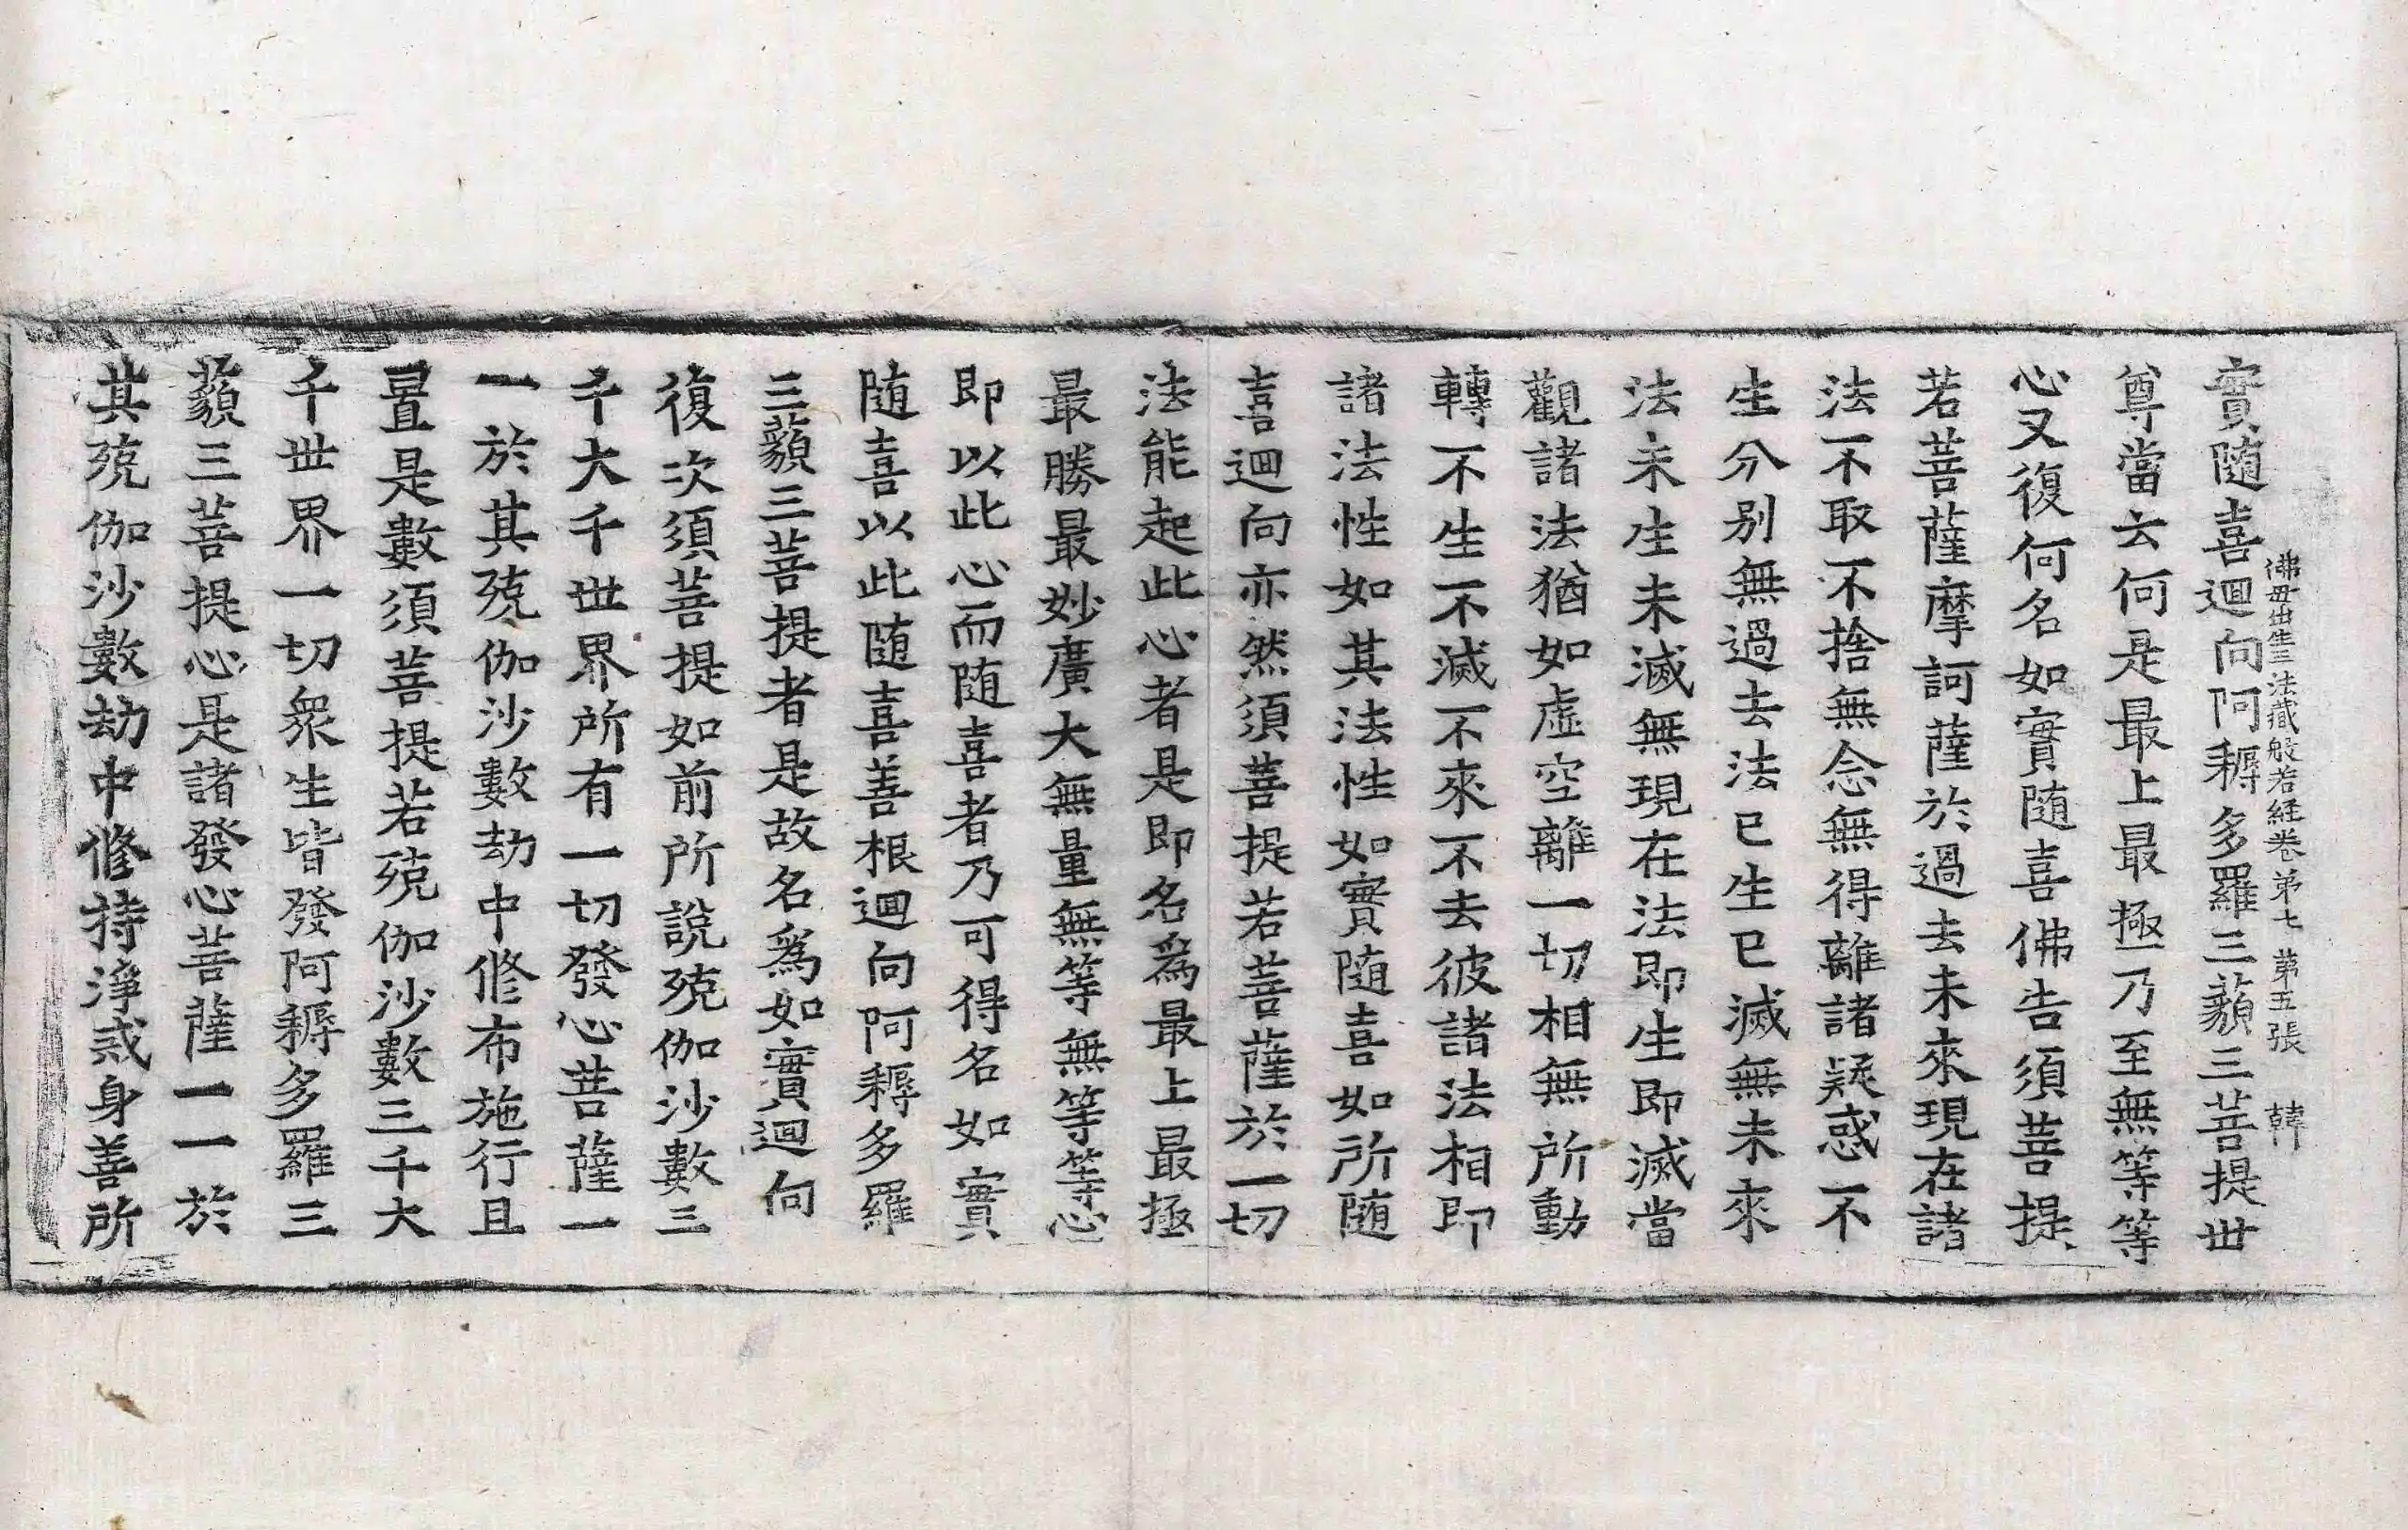 佛毋出生三法藏般若経卷苐七 苐五張 韓
實隨喜迴向阿耨多羅三藐三菩提世
尊當云何是最上最極乃至無等等
心又復何名如實隨喜佛告須菩提
若菩薩摩訶薩於過去未來現在諸
法不取不捨無念無得離諸疑惑不
生分别無過去法已生已滅無未來
法未生未滅無現在法即生即滅當
觀諸法猶如虛空離一切相無所動
轉不生不滅不來不去彼諸法相即
諸法性如其法性如實隨喜如所隨
喜迴向亦然須菩提若菩薩於一切
法能起此心者是即名爲最上最極
最勝最妙廣大無量無等無等等心
即以此心而隨喜者乃可得名如實
隨喜以此隨喜善根迴向阿耨多羅
三藐三菩提者是故名爲如實迴向
復次須菩提如前所說殑伽沙數三
千大千世界所有一切發心菩薩一
一於其殑伽沙數劫中修布施行且
置是數須菩提若殑伽沙數三千大
千世界一切衆生皆發阿耨多羅三
藐三菩提心是諸發心菩薩一一於
其殑伽沙數劫中修持淨戒身善所